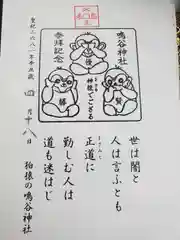 鳴谷神社
参拝記念
神猿でござる
優
勝
世は闇と
人は言ふとも
正道に
勤しむ人は
道も迷はじ
皇紀二六八一年辛丑歳
四月十八日
狛猿の鳴谷神社